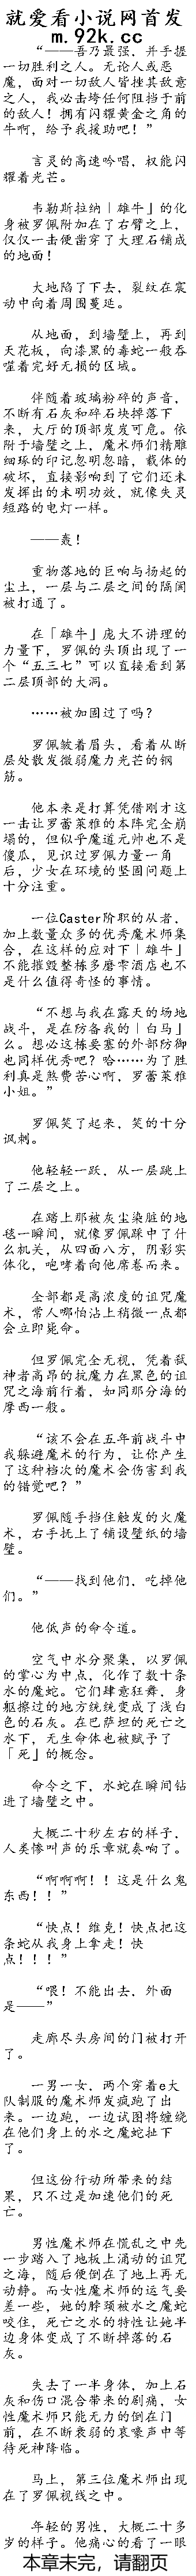 就爱看小说网首发
m.92k.cc
“——吾乃最强，并手握
一切胜利之人。无论人或恶
魔，面对一切敌人皆挫其敌意
之人，我必击垮任何阻挡于前
的敌人！拥有闪耀黄金之角的
牛啊，给予我援助吧！”
言灵的高速吟唱，权能闪
耀着光芒。
韦勒斯拉纳「雄牛」的化
身被罗佩附加在了右臂之上，
仅仅一击便凿穿了大理石铺成
的地面！
大地陷了下去，裂纹在震
动中向着周围蔓延。
从地面，到墙壁上，再到
天花板，向漆黑的毒蛇一般吞
噬着完好无损的区域。
伴随着玻璃粉碎的声音，
不断有石灰和碎石块掉落下
来，大厅的顶部岌岌可危。依
附于墙壁之上，魔术师们精雕
细琢的印记忽明忽暗，载体的
破坏，直接影响到了它们还未
发挥出的未明功效，就像失灵
短路的电灯一样。
——轰！
重物落地的巨响与扬起的
尘土，一层与二层之间的隔阂
被打通了。
在「雄牛」庞大不讲理的
力量下，罗佩的头顶出现了一
个“五三七”可以直接看到第
二层顶部的大洞。
……被加固过了吗？
罗佩皱着眉头，看着从断
层处散发微弱魔力光芒的钢
筋。
他本来是打算凭借刚才这
一击让罗蕾莱雅的本阵完全崩
塌的，但似乎魔道元帅也不是
傻瓜，见识过罗佩力量一角
后，少女在环境的坚固问题上
十分注重。
一位Caster阶职的从者，
加上数量众多的优秀魔术师集
合，在这样的应对下「雄牛」
不能摧毁整栋多磨雫酒店也不
是什么值得奇怪的事情。
“不想与我在露天的场地
战斗，是在防备我的「白马」
么。想必这栋要塞的外部防御
也同样优秀吧？哈……为了胜
利真是煞费苦心啊，罗蕾莱雅
小姐。”
罗佩笑了起来，笑的十分
讽刺。
他轻轻一跃，从一层跳上
了二层之上。
在踏上那被灰尘染脏的地
毯一瞬间，就像罗佩踩中了什
么机关，从四面八方，阴影实
体化，咆哮着向他席卷而来。
全部都是高浓度的诅咒魔
术，常人哪怕沾上稍微一点都
会立即毙命。
但罗佩完全无视，凭着弑
神者高昂的抗魔力在黑色的诅
咒之海前行着，如同那分海的
摩西一般。
“该不会在五年前战斗中
我躲避魔术的行为，让你产生
了这种档次的魔术会伤害到我
的错觉吧？”
罗佩随手挡住触发的火魔
术，右手抚上了铺设壁纸的墙
壁。
“——找到他们，吃掉他
们。”
他低声的命令道。
空气中水分聚集，以罗佩
的掌心为中点，化作了数十条
水的魔蛇。它们肆意狂舞，身
躯擦过的地方统统变成了浅白
色的石灰。在巴萨坦的死亡之
水下，无生命体也被赋予了
「死」的概念。
命令之下，水蛇在瞬间钻
进了墙壁之中。
大概二十秒左右的样子，
人类惨叫声的乐章就奏响了。
“啊啊啊！！这是什么鬼
东西！！”
“快点！维克！快点把这
条蛇从我身上拿走！快
点！！！”
“喂！不能出去，外面
是——”
走廊尽头房间的门被打开
了。
一男一女，两个穿着e大
队制服的魔术师发疯跑了出
来。一边跑，一边试图将缠绕
在他们身上的水之魔蛇扯下
了。
但这份行动所带来的结
果，只不过是加速他们的死
亡。
男性魔术师在慌乱之中先
一步踏入了地板上涌动的诅咒
之海，随后便倒在了地上再无
动静。而女性魔术师的运气要
差一些，她的脖颈被水之魔蛇
咬住，死亡之水的特性让她半
边身体变成了不断掉落的石
灰。
失去了一半身体，加上石
灰和伤口混合带来的刷痛，女
性魔术师只能无力的倒在门
前，在不断衰弱的哀嚎声中等
待死神降临。
马上，第三位魔术师出现
在了罗佩视线之中。
年轻的男性，大概二十多
岁的样子。他痛心的看了一眼
本章未完，请翻页